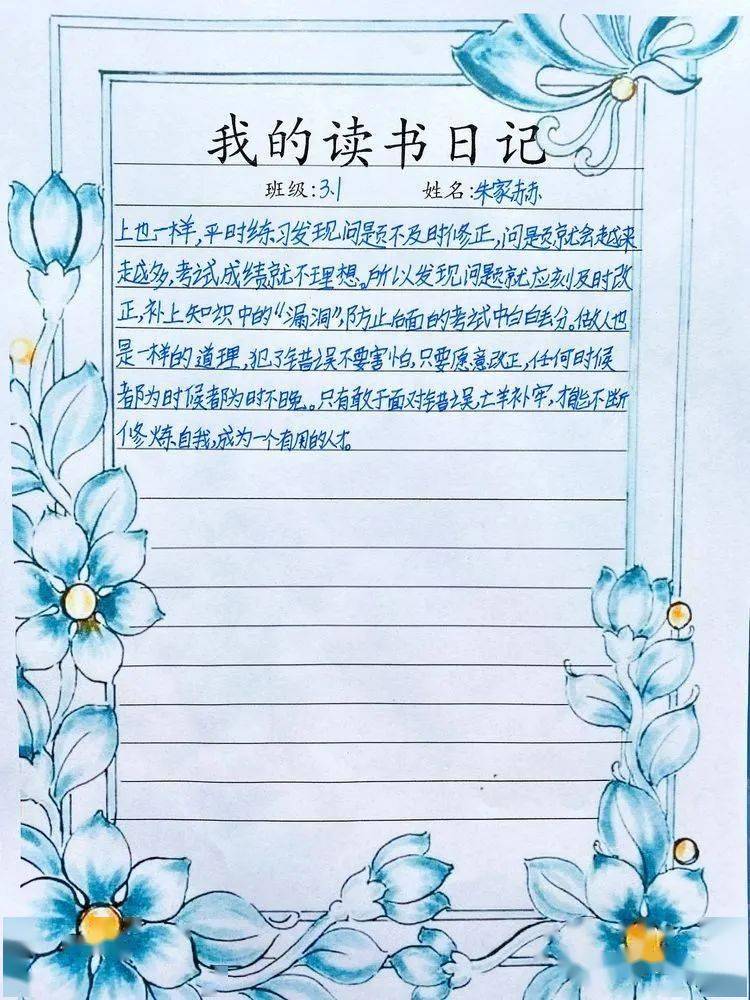 我的读书日记
班级:3.1 姓名:朱家赫
上也一样,平时练习发现问题不及时修正,问题就会越来
走越多,考试成绩就不理想。所以发现问题就应刻及时改
正,补上知识中的“漏洞”,防止后面的考试中白白丢分。做人也
是一样的道理,犯了错误不要害怕,只要愿意改正,任何时候
都为时候都为时不晚。只有敢于面对错误,亡羊补牢,才能不断
修炼自我,成为一个有用的人才。